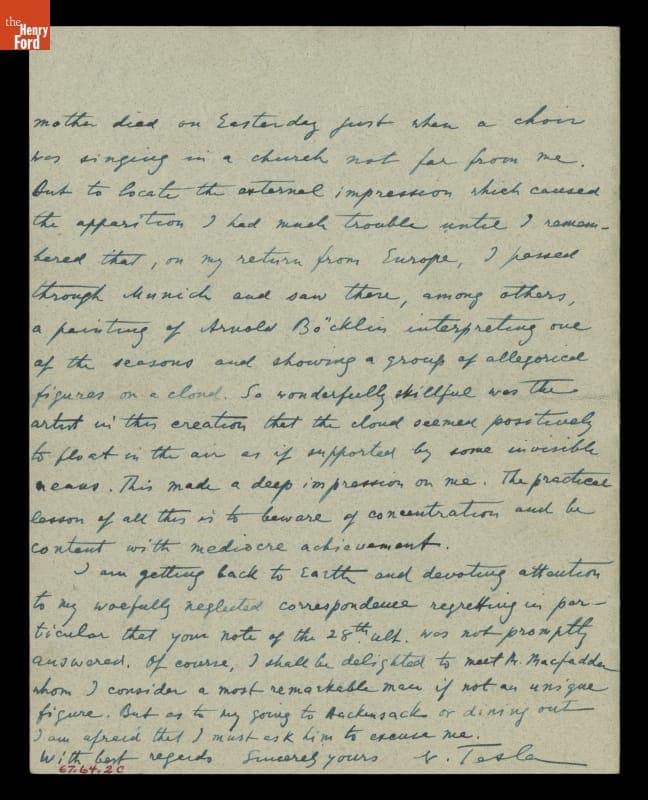 the
Henry
Ford
mother died on Easterday just when a choir
was singing in a church not far from me.
But to locate the external impression which caused
the apparition I had much trouble until I remem-
bered that, on my return from Europe, I passed
through Munich and saw there, among others,
a painting of Arnold Böcklin interpreting one
of the seasons and showing a group of allegorical
figures on a cloud. So wonderfully skillful was the
artist in this creation that the cloud seemed positively
to float in the air as if supported by some invisible
means. This made a deep impression on me. The practical
lesson of all this is to beware of concentration and be
content with mediocre achievement.
I am getting back to Earth and devoting attention
to my woefully neglected correspondence regretting in par-
ticular that your note of the 28th ult. was not promptly
answered. Of course, I shall be delighted to meet Mr. Macfadden
whom I consider a most remarkable man if not an unique
figure. But as to my going to Hackensack or dining out
I am afraid that I must ask him to excuse me.
With best regards Sincerely yours N. Tesla
67.64.2C